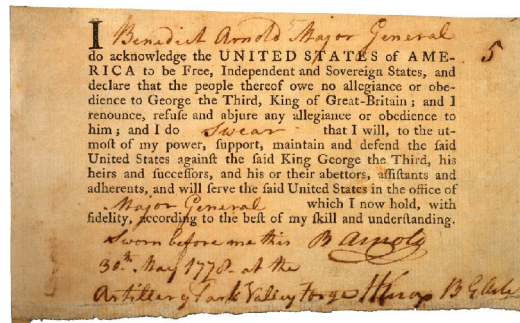 I Benedict Arnold Major General
5
do acknowledge the UNITED STATES of AME-
RICA to be Free, Independent and Sovereign States, and
declare that the people thereof owe no allegiance or obe-
dience to George the Third, King of Great-Britain; and I
renounce, refuse and abjure any allegiance or obedience to
him; and I do Swear that I will, to the ut-
moſt of my power, ſupport, maintain and defend the ſaid
United States againſt the ſaid King George the Third, his
heirs and ſucceſſors, and his or their abettors, aſſiſtants and
adherents, and will ſerve the ſaid United States in the office of
Major General which I now hold, with
fidelity, according to the beſt of my skill and underſtanding.
Sworn before me this B Arnold
30th May 1778 at the
Artillery Park Valley Forge HKnox B G Art